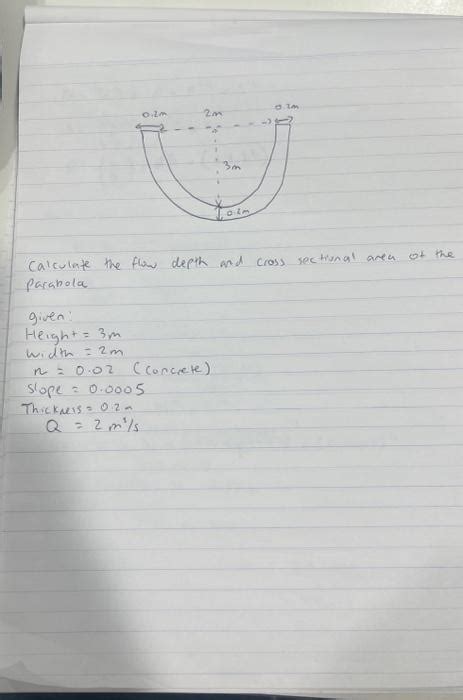 0.2m 2m 0.2m
3m
0.2m
Calculate the flow depth and cross sectional area of the
parabola
given:
Height = 3m
width = 2m
n = 0.02 (concrete)
Slope = 0.0005
Thickness = 0.2m
Q = 2 m³/s